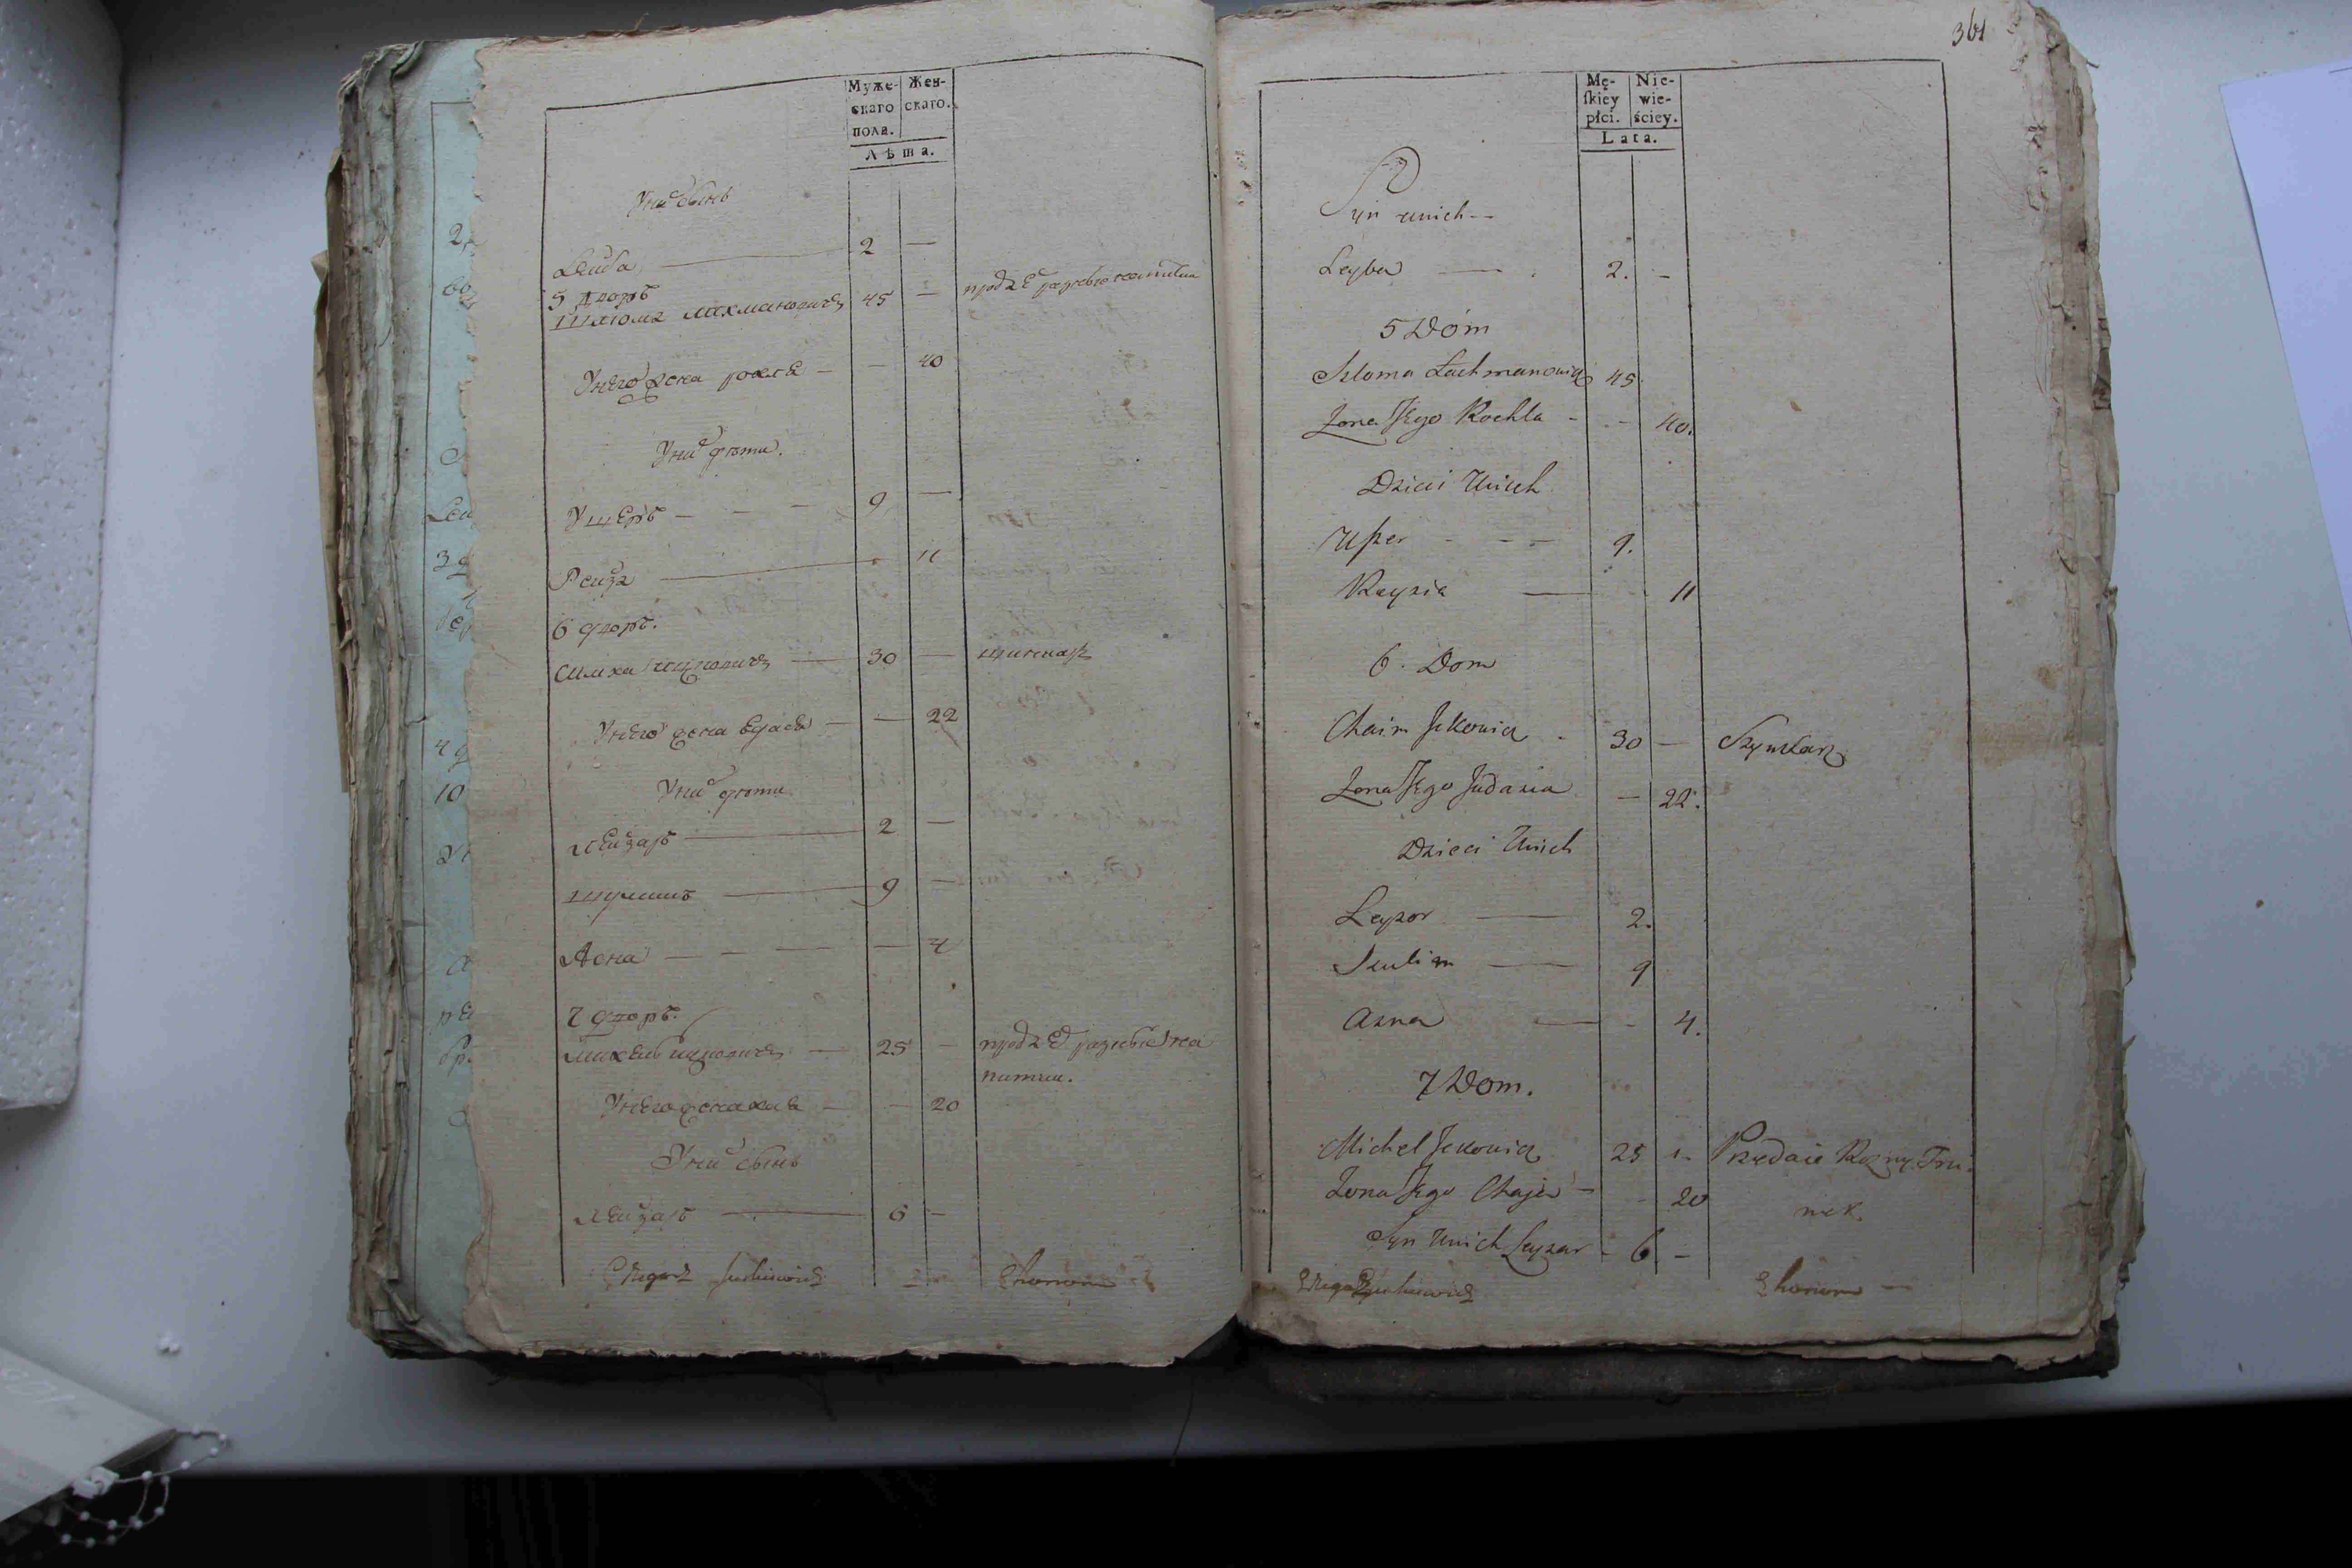 Муже-
скаго
пола.
Жен-
скаго.
Лѣта.
У них сынъ
Лейба 2 —
5 дворъ
Шлiома Лахмановичъ 45 —
У него жена рохля — — 40
У них дѣти.
Ушеръ — — — 9 —
Рейза 11
6 дворъ.
— 30 — шинкаръ
У него жена — — 22
У них дѣти
Лейзаръ 2 —
Шулимъ 9 —
Асна — — — — 4
7 дворъ.
25 —
питии.
У него жена хая — — 20
У них сынъ
Лейзаръ 6 —
361
Mę-
ſkiey
płci.
Nie-
wie-
ściey.
Lata.
Syn unich --
Leyba — 2. -
5 Dóm
Szloma Lachmanowicz 45
Zona Jego Rochla - - 40.
Dzieci Unich
Uszer - - - 9.
Rayzia — 11
6. Dom
Chaim Ickowicz - 30 — Szynkarz
Zona Jego Judasia — 22.
Dzieci Unich
Leyzor — 2.
Szulim — 9
Asna — - 4.
7 Dom.
Michel Ickowicz 25 - Przedaie Rozny Tru-
Zona Jego Chaja - - 20
nek.
Syn Unich Leyzar - 6 -